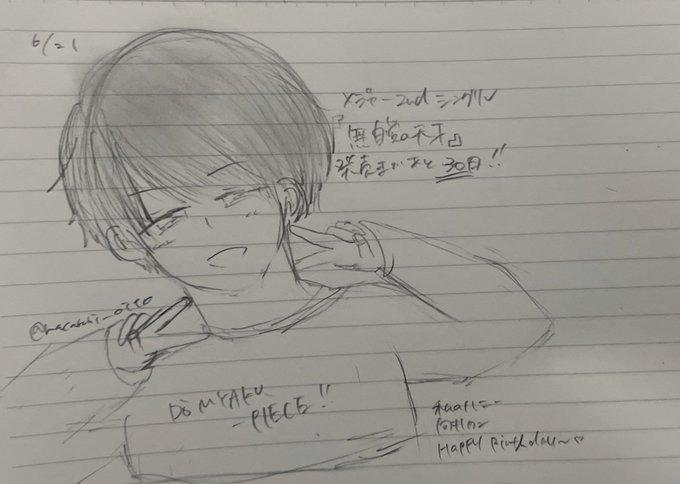 6/21
メジャー2ndシングル
『無自覚の天才』
発売まであと30日!!
DŌMYAKU
-PIECE!!
Happy Birthday〜♡